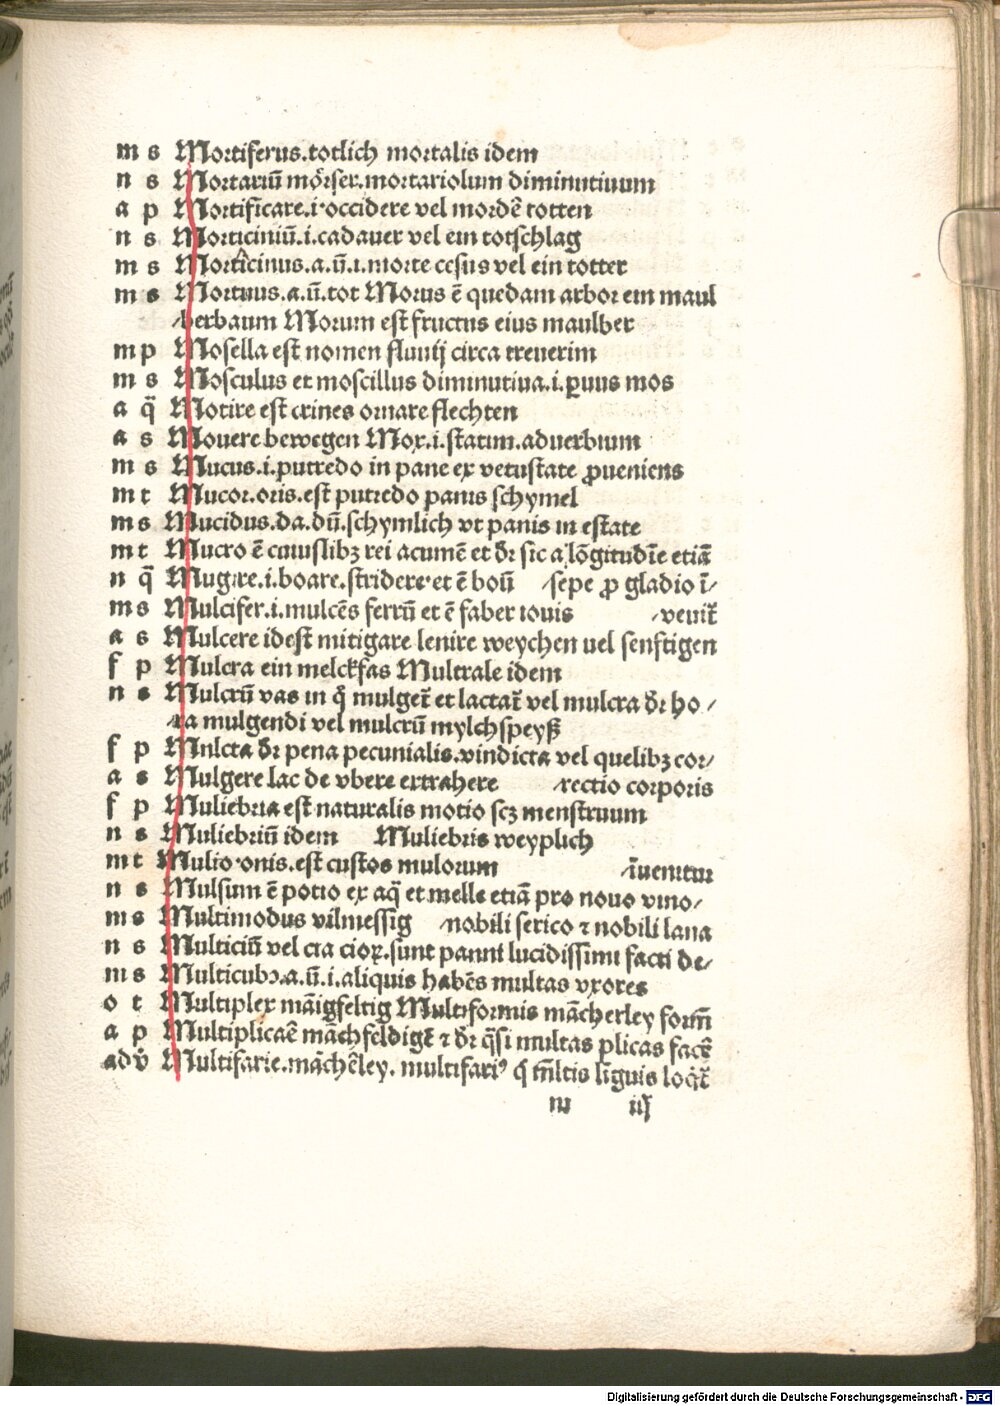 m s Mortiferus.totlich mortalis idem
n s Mortariū mörser.mortariolum diminutiuum
a p Mortificare.i.occidere vel mordē totten
n s Morticiniū.i.cadauer vel ein totschlag
m s Morticinus.a.ū.i.morte cesus vel ein totter
m s Mortuus.a.ū.tot Morus ē quedam arbor ein maul
/berbaum Morum est fructus eius maulber
m p Mosella est nomen fluuij circa treuerim
m s Mosculus et moscillus diminutiua.i.ꝑuus mos
a q̄ Motire est crines ornare flechten
a s Mouere bewegen Mox.i.statim.aduerbium
m s Mucus.i.putredo in pane ex vetustate ꝓueniens
m t Mucor.oris.est putredo panis schymel
m s Mucidus.da.dū.schymlich vt panis in estate
m t Mucro ē cuiuslibꝫ rei acumē et dr̄ sic a lōgitudīe etiā
n q̄ Mugire.i.boare.stridere et ē boū /sepe ꝓ gladio ī/
m s Mulcifer.i.mulcēs ferrū et ē faber iouis /venit̄
a s Mulcere idest mitigare lenire weychen uel senftigen
f p Mulcra ein melckfas Multrale idem
n s Mulcrū vas in q̄ mulget̄ et lactat̄ vel mulcra dr̄ ho/
/ra mulgendi vel mulcrū mylchspeyß
f p Mulcta dr̄ pena pecunialis.vindicta vel quelibꝫ cor/
a s Mulgere lac de vbere extrahere /rectio corporis
f p Muliebria est naturalis motio scꝫ menstruum
n s Muliebriū idem Muliebris weyplich
m t Mulio.onis.est custos mulorum /īuenitur
n s Mulsum ē potio ex aq̄ et melle etiā pro nouo vino/
m s Multimodus vilmessig /nobili serico ⁊ nobili lana
n s Multiciū vel cia cioꝝ.sunt panni lucidissimi facti de/
m s Multicubꝰ.a.ū.i.aliquis habēs multas vxores
o t Multiplex māigfeltig Multiformis mācherley form̄
a p Multiplicaē māchfeldigē ⁊ dr̄ q̄si multas plicas facē
adv̄ Multifarie.māchēley. multifariꝰ q̄ ml̄tis līguis loq̄t̄
m iij
Digitalisierung gefördert durch die Deutsche Forschungsgemeinschaft - DFG